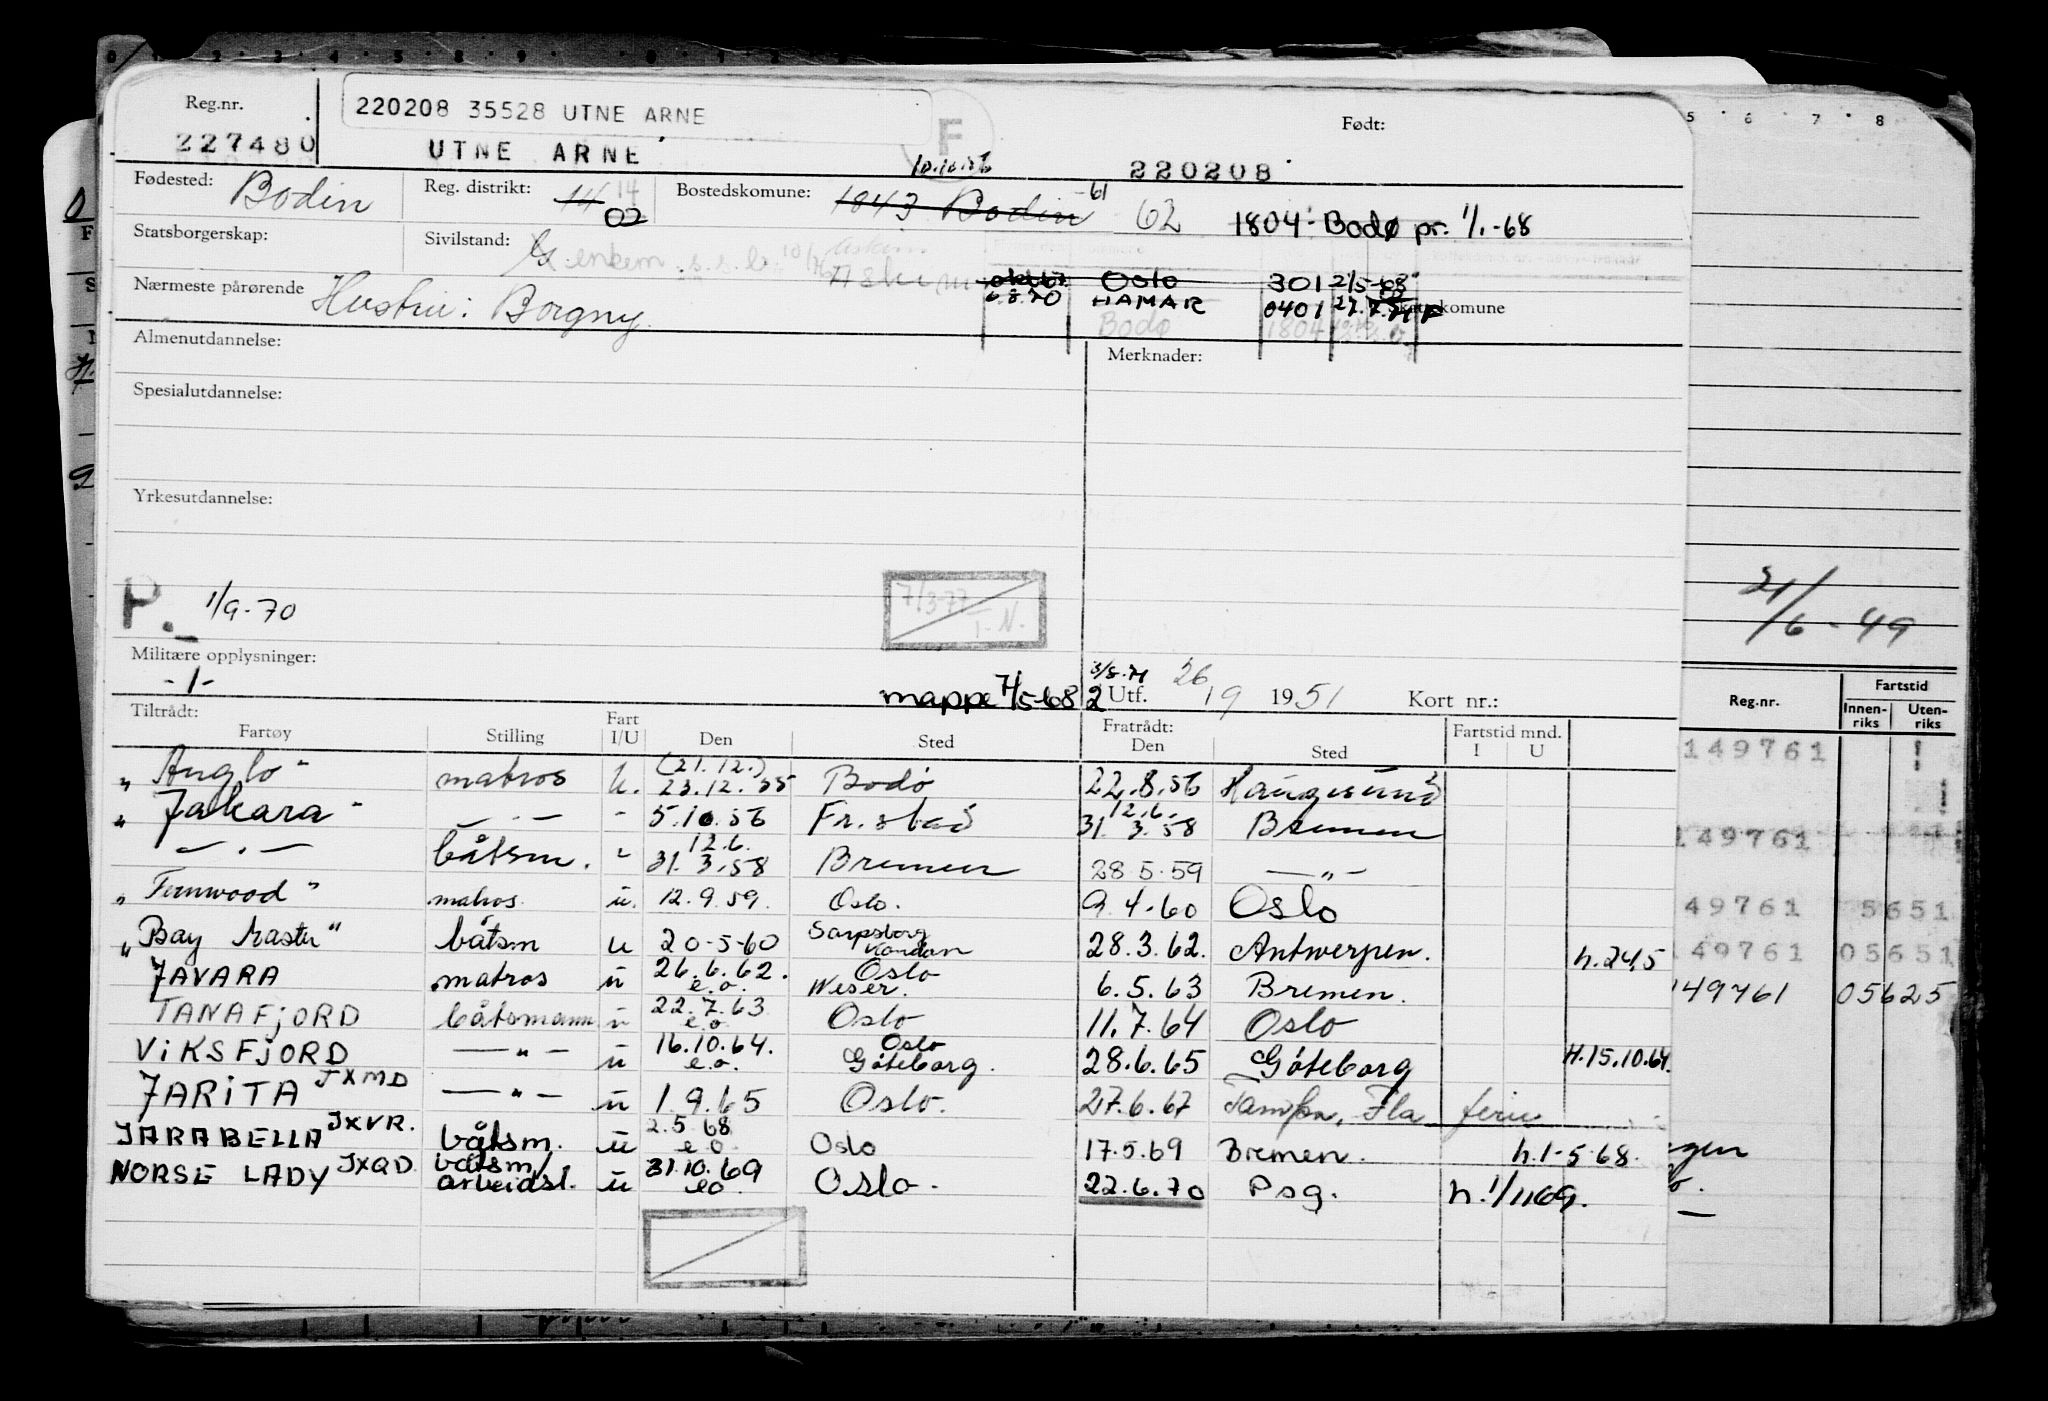 Reg.nr.
220208 35528 UTNE ARNE
F
Født:
227480
UTNE ARNE
10.10.56
220208
Fødested: Bodin
Reg. distrikt: 14 14
02
Bostedskomune: 1843 Bodin -61 62 1804 - Bodø pr. 1/1.-68
Statsborgerskap:
Sivilstand: G enkem. s.s.b. 10/76
Askim
Nærmeste pårørende Hustru: Borgny
Oslo 301 21/5-68
6.8.70 HAMAR 0401 27.7.71 F
Skattekomune
Bodø 1804
Almenutdannelse:
Merknader:
Spesialutdannelse:
Yrkesutdannelse:
P. 1/9-70
7/3-77
I.N.
21/6-49
Militære opplysninger:
-1-
mappe 7/5-68
3/8.71
2 Utf. 26/9 1951 Kort nr.:
Reg.nr. Fartstid
Innenriks Utenriks
Tiltrådt: Fartøy Stilling Fart I/U Den Sted Fratrådt: Den Sted Fartstid mnd. I U
„Anglo" matros u. (21.12.) 23.12.55 Bodö 22.8.56 Haugesund
149761
„Jakara" — . — - 5.10.56 Fr.stad 12.6. 31.3.58 Bremen
— . — båtsm. " 12.6. 31.3.58 Bremen 28.5.59 — „ —
149761
„Fernwood" matros u. 12.9.59. Oslo. 9.4-60 Oslo
49761 5651
„Bay Master" båtsm u 20-5-60 Sarpsborg 28.3.62. Antwerpen. h.24.5
149761 05651
JAVARA matros u 26.6.62. e.o. Oslo Weser. 6.5.63 Bremen.
149761 05625
TANAFJORD båtsmann u 22.7.63 e.o Oslo 11.7.64 Oslo
VIKSFJORD — „ — u 16.10.64. e.o. Oslo Göteborg. 28.6.65 Göteborg H.15.10.64.
JARITA JXMD — „ — u 1.9.65 Oslo. 27.6.67 Tampa, Fla ferie
JARABELLA JXVR. båtsm. u 2.5.68 e o Oslo 17.5.69 Bremen. h.1-5-68.
NORSE LADY JXQD båtsm/ arbeidsl. u 31.10.69 eo. Oslo. 22.6.70 Psg. h.1/11 69.